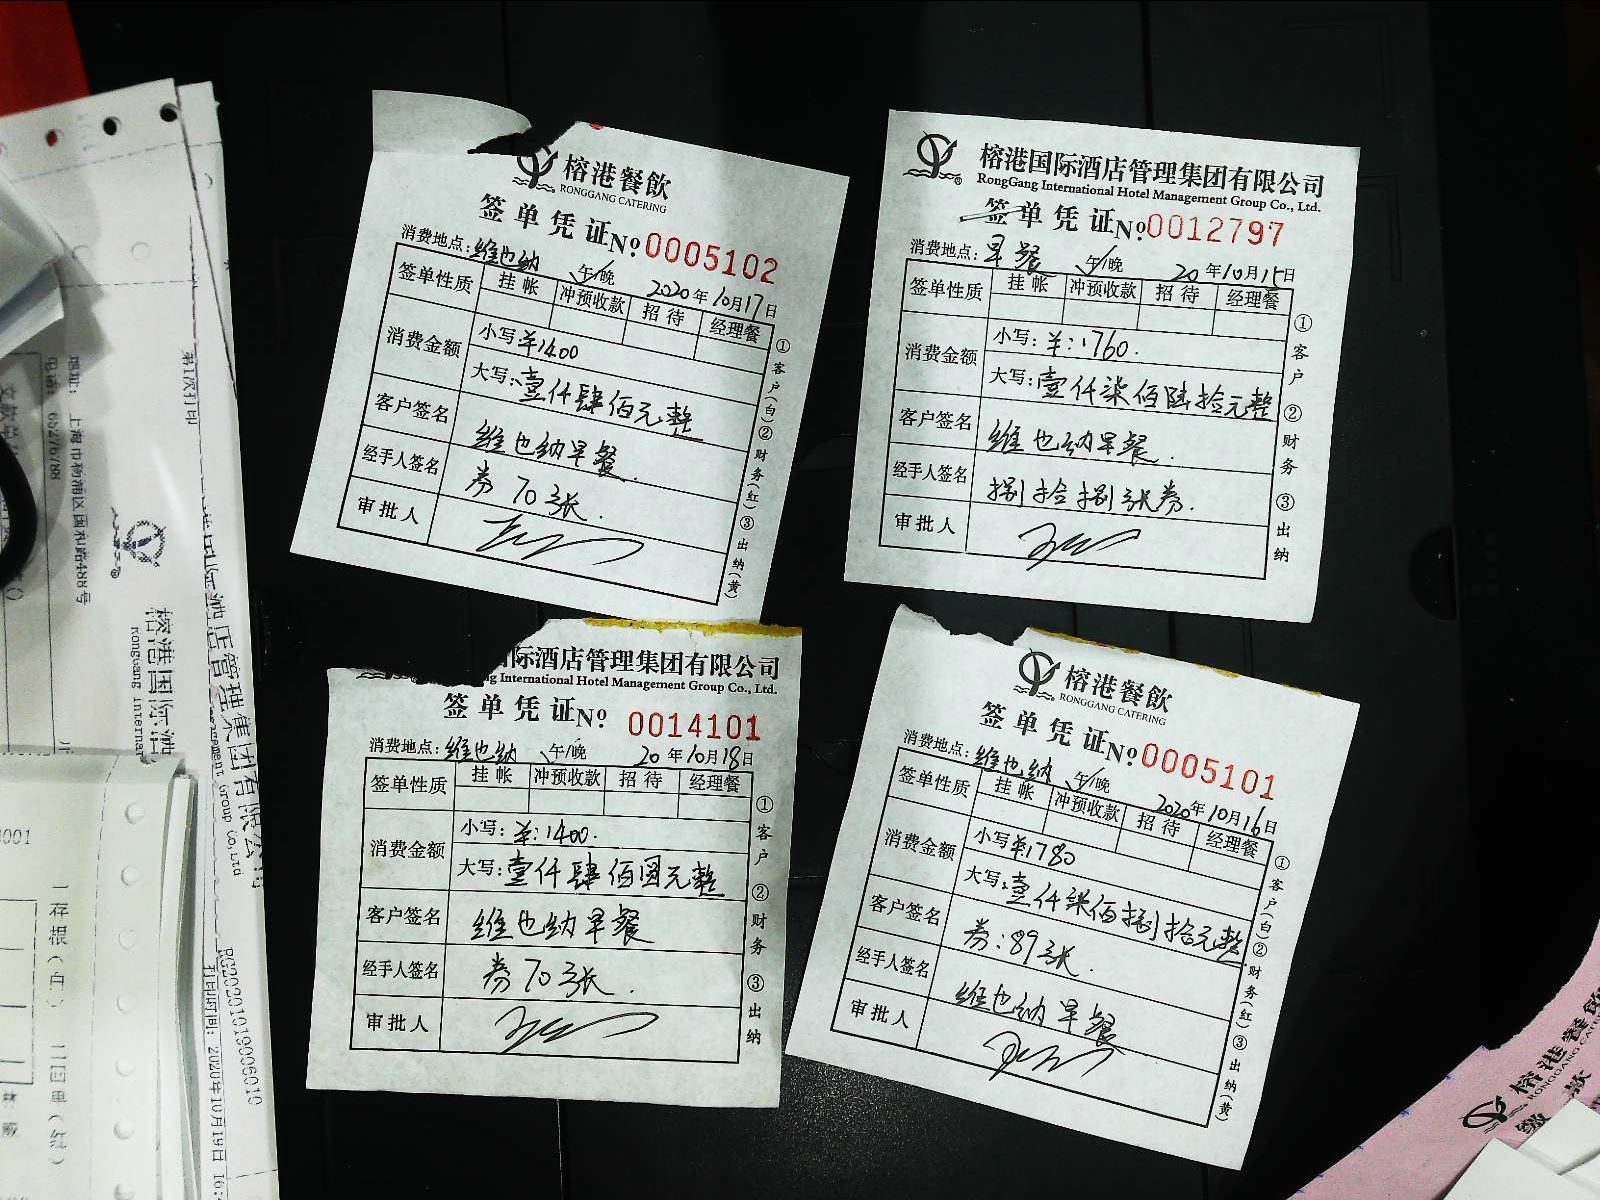 榕港餐飲
RONGGANG CATERING
签单凭证 No 0005102
消费地点：维也纳 午/晚 2020年10月17日
签单性质 挂帐 冲预收款 招待 经理餐
消费金额 小写：¥1400
大写：壹仟肆佰元整
客户签名 维也纳早餐.
经手人签名 券70张.
审批人
①客户(白)②财务(红)③出纳(黄)
榕港国际酒店管理集团有限公司
RongGang International Hotel Management Group Co., Ltd.
签单凭证 No 0012797
消费地点：早餐 午/晚 20年10月15日
签单性质 挂帐 冲预收款 招待 经理餐
消费金额 小写：¥：1760.
大写：壹仟柒佰陆拾元整
客户签名 维也纳早餐.
经手人签名 捌拾捌张券.
审批人
①客户 ②财务 ③出纳
际酒店管理集团有限公司
International Hotel Management Group Co., Ltd.
签单凭证 No 0014101
消费地点：维也纳 午/晚 20年10月18日
签单性质 挂帐 冲预收款 招待 经理餐
消费金额 小写：¥：1400.
大写：壹仟肆佰圆元整
客户签名 维也纳早餐
经手人签名 券70张.
审批人
①客户 ②财务 ③出纳
榕港餐飲
RONGGANG CATERING
签单凭证 No 0005101
消费地点：维也纳 午/晚 2020年10月16日
签单性质 挂帐 冲预收款 招待 经理餐
消费金额 小写：¥1780
大写：壹仟柒佰捌拾元整
客户签名 券：89张.
经手人签名 维也纳早餐
审批人
①客户(白)②财务(红)③出纳(黄)
第1次打印
地址：上海市杨浦区国和路488号
电话：65276788
榕港国际酒
RongGang Internat
酒店管理集团有限公司
Group Co., Ltd
RC20201019006010
打印时间：2020年10月19日 16:
一存根(白) 二回单(红)
榕港餐飲
RONGGANG
缴款